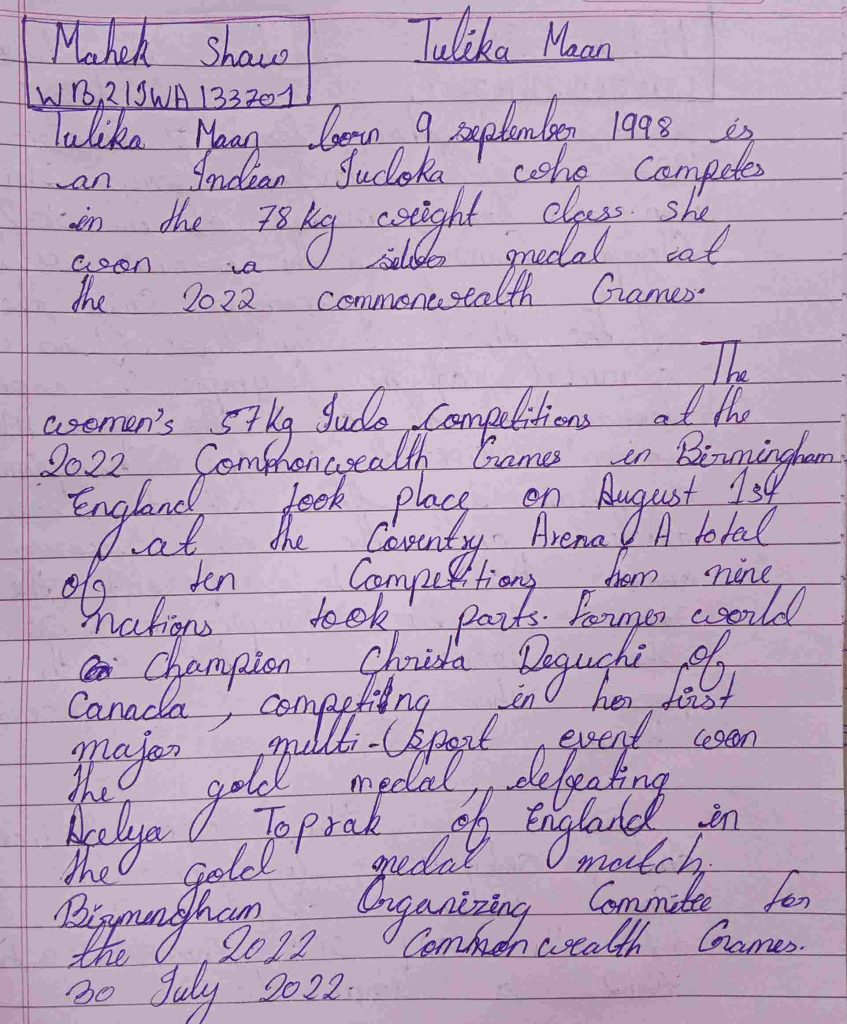 Mahek Shaw
Tulika Maan
WB21SWA133701
Tulika Maan born 9 september 1998 is
an Indian Judoka who Competes
in the 78 kg weight class. she
won a silver medal at
the 2022 commonwealth Games.
The
women's 57kg Judo Competitions at the
2022 Commonwealth Games in Birmingham
England took place on August 1st
at the Coventry Arena A total
of ten Competitions from nine
nations took parts. Former world
Champion Christa Deguchi of
Canada, competing in her first
major multi-sport event won
the gold medal, defeating
Acelya Toprak of England in
the gold medal match.
Birmengham Organizing Commitee for
the 2022 Common wealth Games.
30 July 2022.